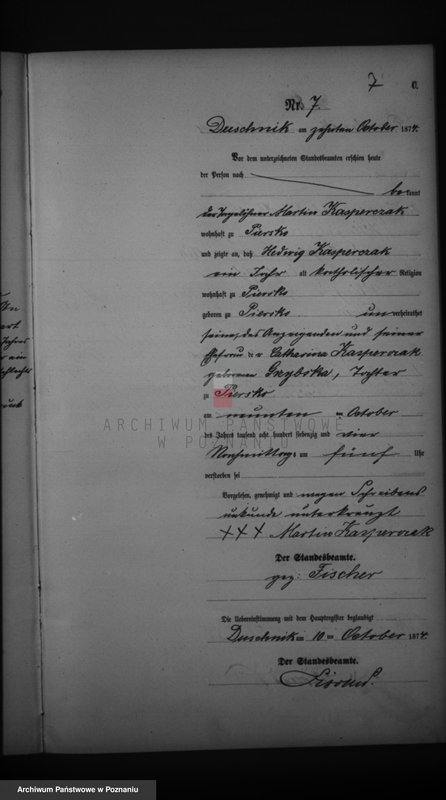 7
C.
Nr. 7.
Duschnik am zehnten October 1874.
Vor dem unterzeichneten Standesbeamten erschien heute
der Person nach
bekannt
der Tagelöhner Martin Kasperczak
wohnhaft zu Piersko
und zeigte an, daß Hedwig Kasperczak
ein Jahr alt katholischer Religion
wohnhaft zu Piersko
geboren zu Piersko unverheirathet
seiner, des Anzeigenden und seiner
Ehefrau der Catharina Kasperczak
geborenen Grybska, Tochter
zu Piersko
am neunten ten October
des Jahres tausend acht hundert siebenzig und vier
Nachmittags um fünf Uhr
verstorben sei
Vorgelesen, genehmigt und wegen Schreibens
unkunde unterkreuzt
+++ Martin Kasperczak
Der Standesbeamte.
gez: Fischer
Die Uebereinstimmung mit dem Hauptregister beglaubigt
Duschnik am 10 ten October 1874.
Der Standesbeamte.
ARCHIWUM PAŃSTWOWE
W POZNANIU
Archiwum Państwowe w Poznaniu